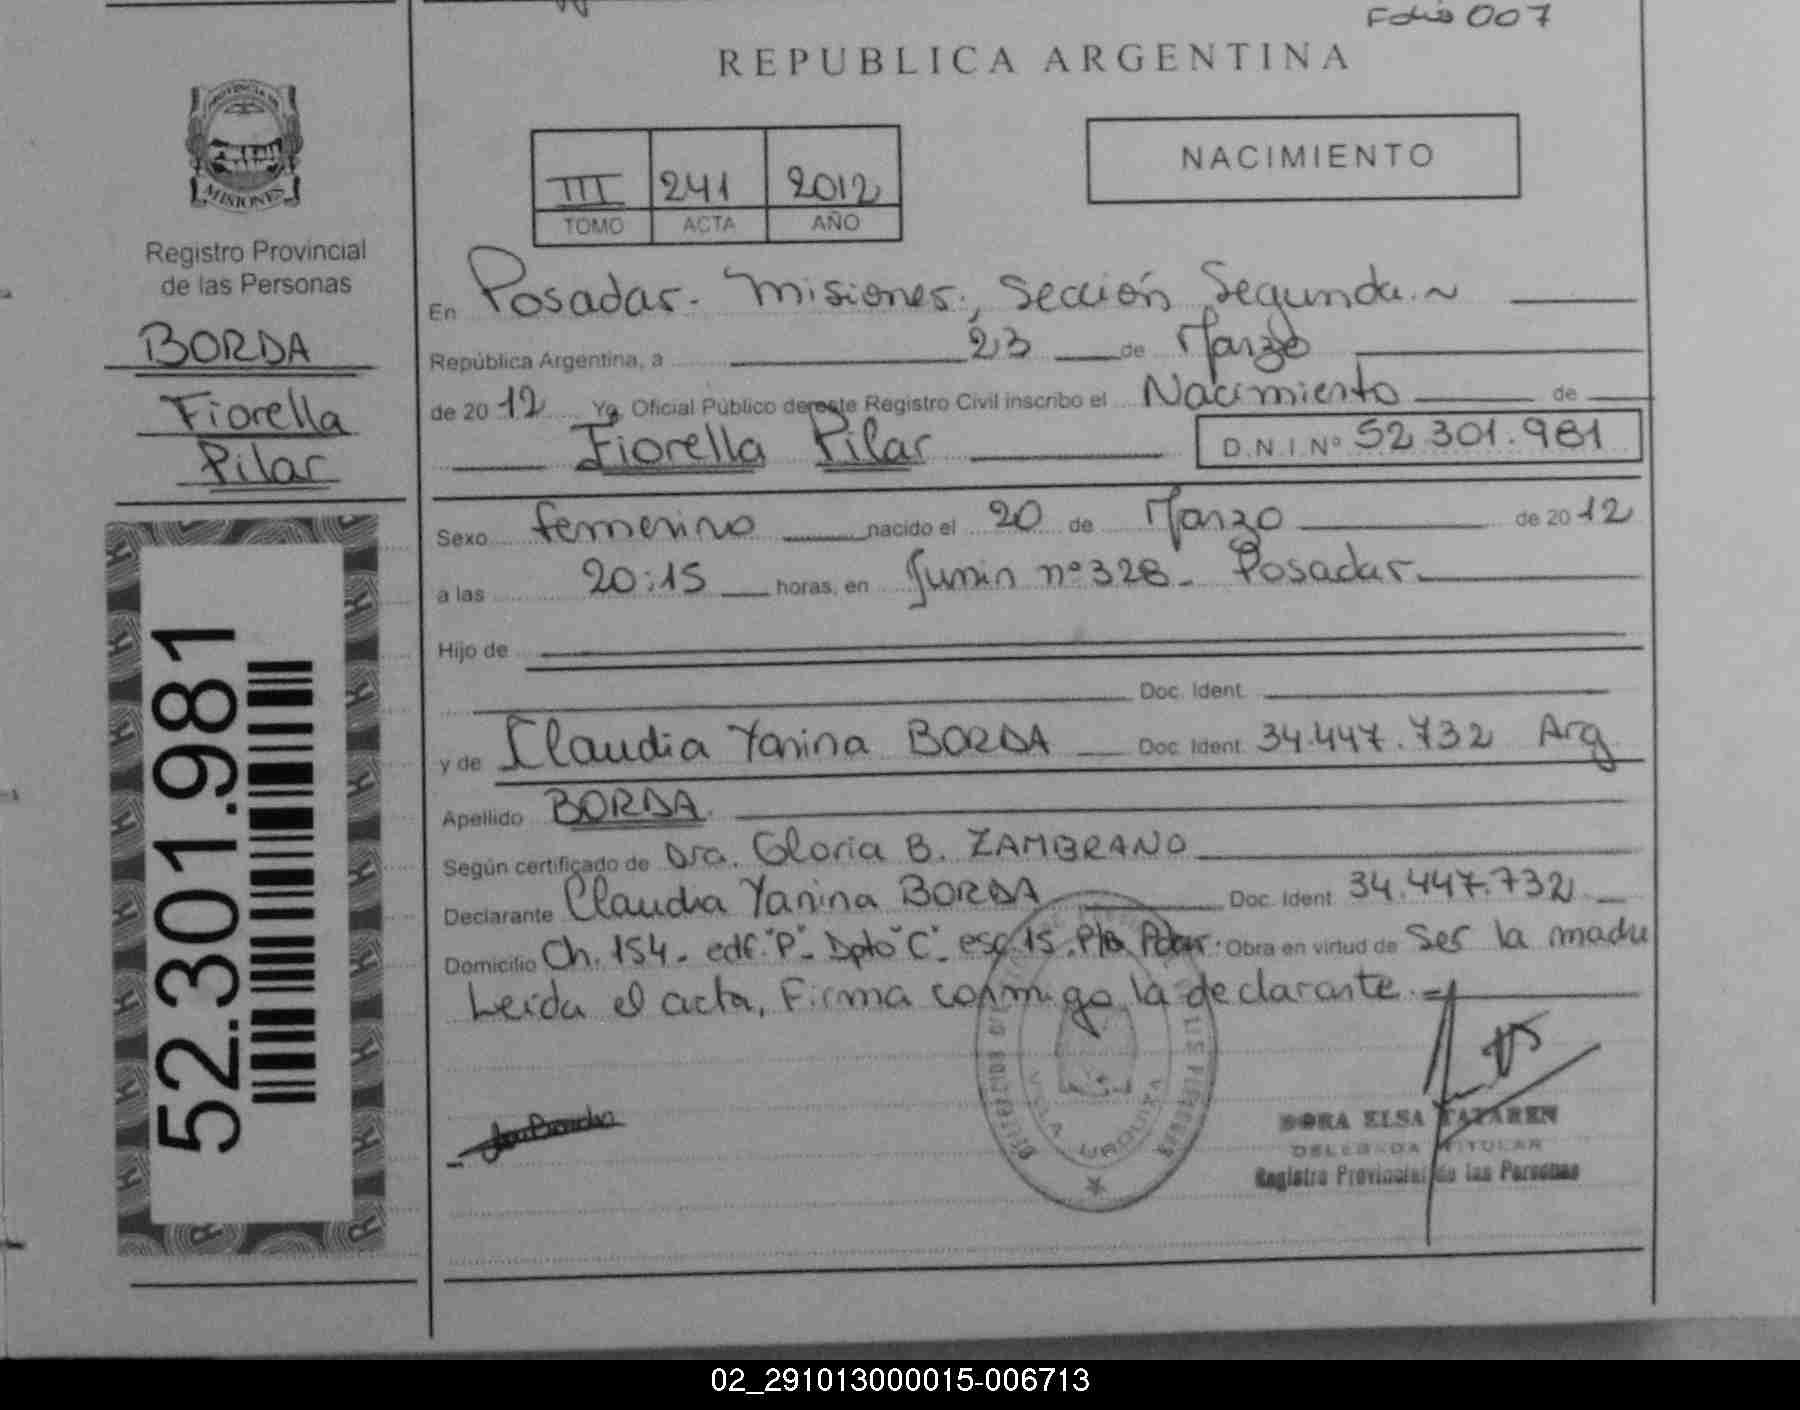 Folio 007
REPUBLICA ARGENTINA
PROVINCIA DE
MISIONES
Registro Provincial
de las Personas
BORDA
Fiorella
Pilar
52.301.981
III 241 2012
TOMO ACTA AÑO
NACIMIENTO
En Posadas - Misiones, Sección Segunda.~
República Argentina, a 23 de Marzo
de 2012 Yo Oficial Público de este Registro Civil inscribo el Nacimiento de
Fiorella Pilar D.N.I.Nº 52.301.981
Sexo femenino nacido el 20 de Marzo de 2012
a las 20:15 horas, en Junin nº 328 - Posadas.
Hijo de
Doc. Ident.
y de Claudia Yanina BORDA Doc. Ident. 34.447.732 Arg
Apellido BORDA.
Según certificado de Dra. Gloria B. ZAMBRANO
Declarante Claudia Yanina BORDA Doc. Ident. 34.447.732
Domicilio Ch. 154 - edf. "P" - Dpto "C" - esc. 15 Obra en virtud de Ser la madre
Leida el acta, Firma conmigo la declarante.=
VILLA URQUIZA
DORA ELSA
DELEGADA TITULAR
Registro Provincial de las Personas
02_291013000015-006713